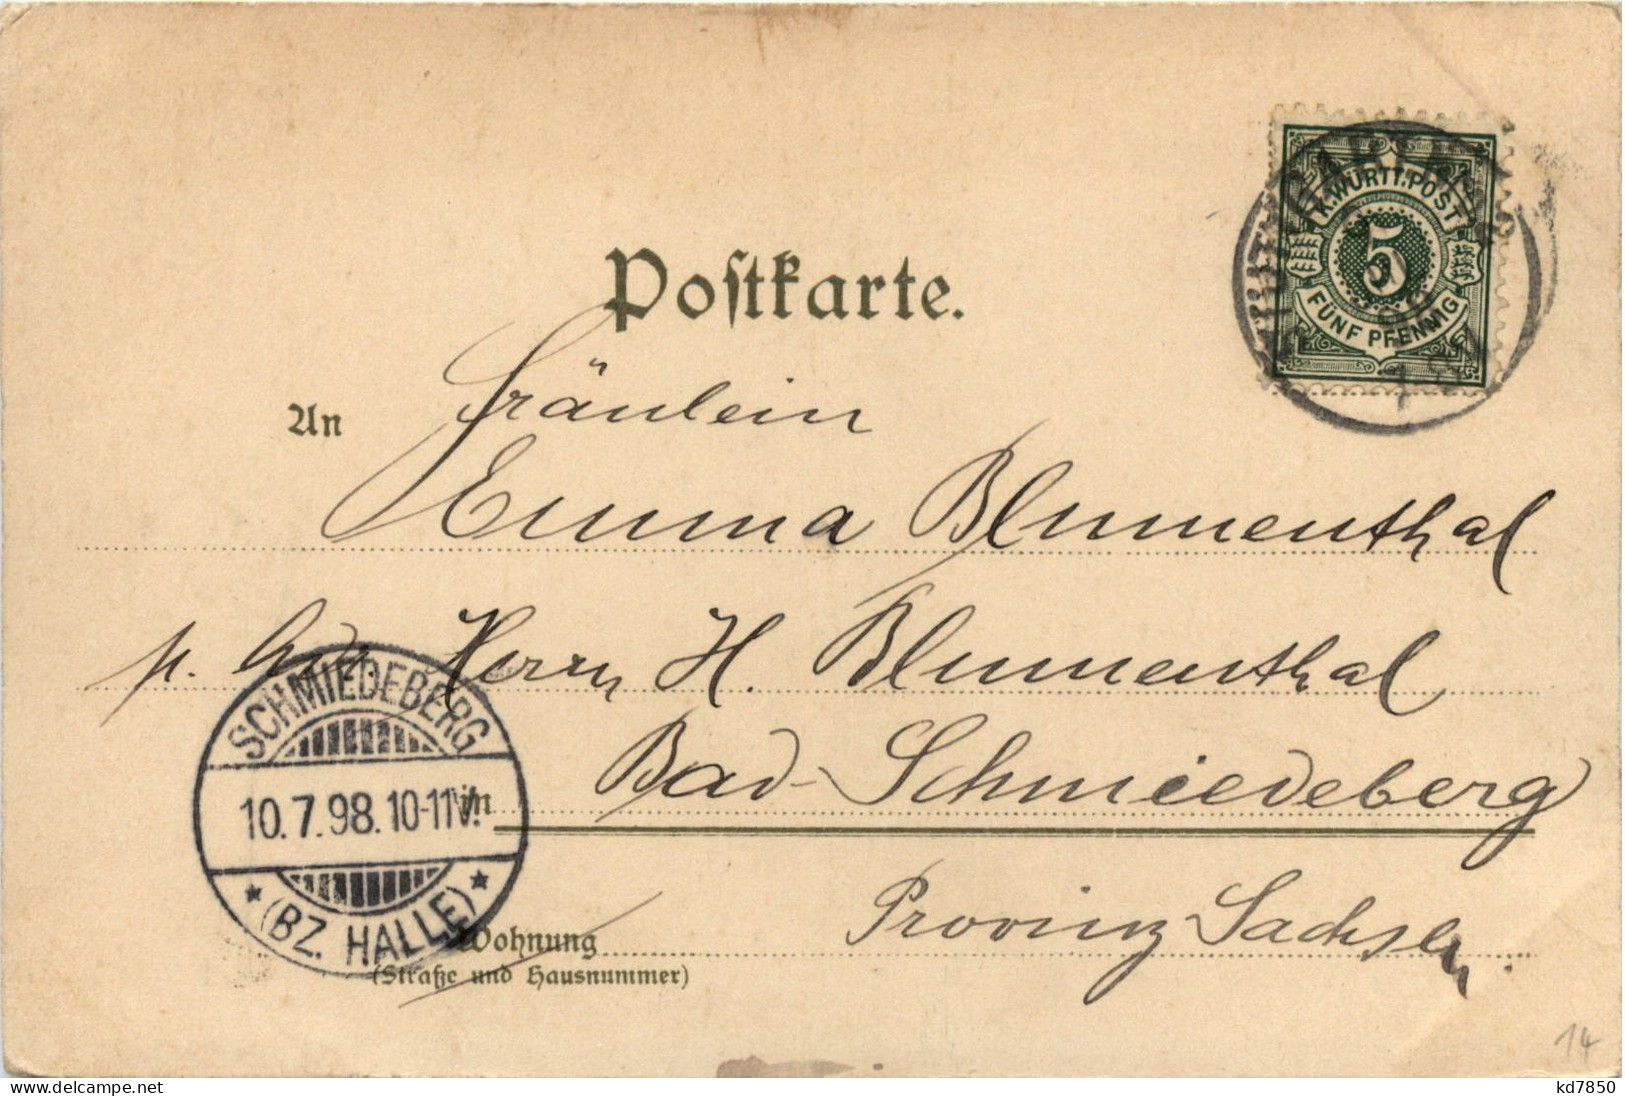 Postkarte.
K. WÜRTT. POST
5
FÜNF PFENNIG
An Fräulein
Emma Blumenthal
p. Herrn H. Blumenthal
SCHMIEDEBERG
10.7.98. 10-11V.
(BZ. HALLE)
in Bad-Schmiedeberg
Provinz Sachsen.
Wohnung
(Straße und Hausnummer)
14
www.delcampe.net
kd7850